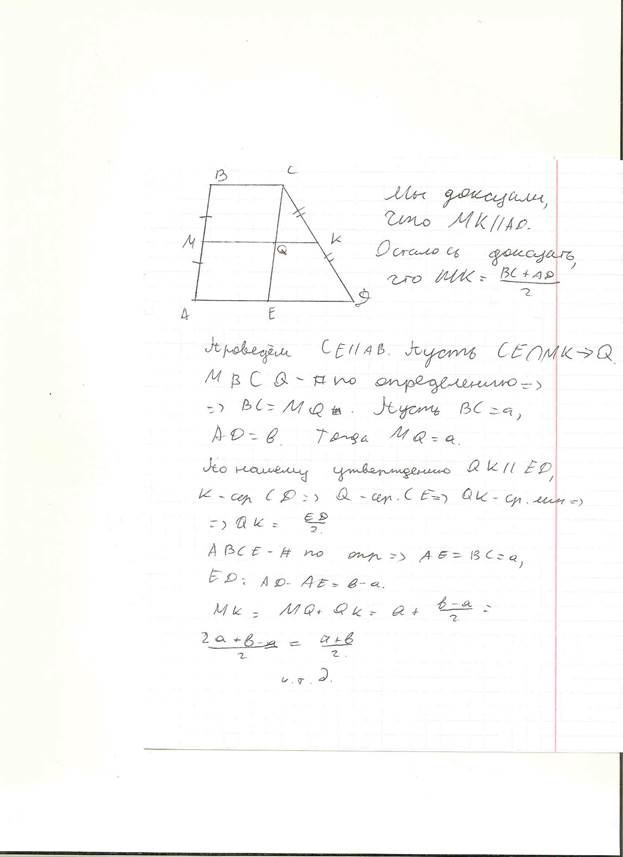 B C
M Q K
A E D
Мы доказали,
что MK||AD.
Осталось доказать,
что MK = (BC + AD)/2
Проведём CE||AB. Пусть CE∩MK→Q.
MBCQ - # по определению =>
=> BC = MQ. Пусть BC = a,
AD = b. Тогда MQ = a.
По нашему утверждению QK||ED,
K - сер CD => Q - сер. CE => QK - ср. лин =>
=> QK = ED/2.
ABCE - # по опр => AE = BC = a,
ED = AD - AE = b - a.
MK = MQ + QK = a + (b-a)/2 =
(2a + b - a)/2 = (a+b)/2.
ч.т.д.